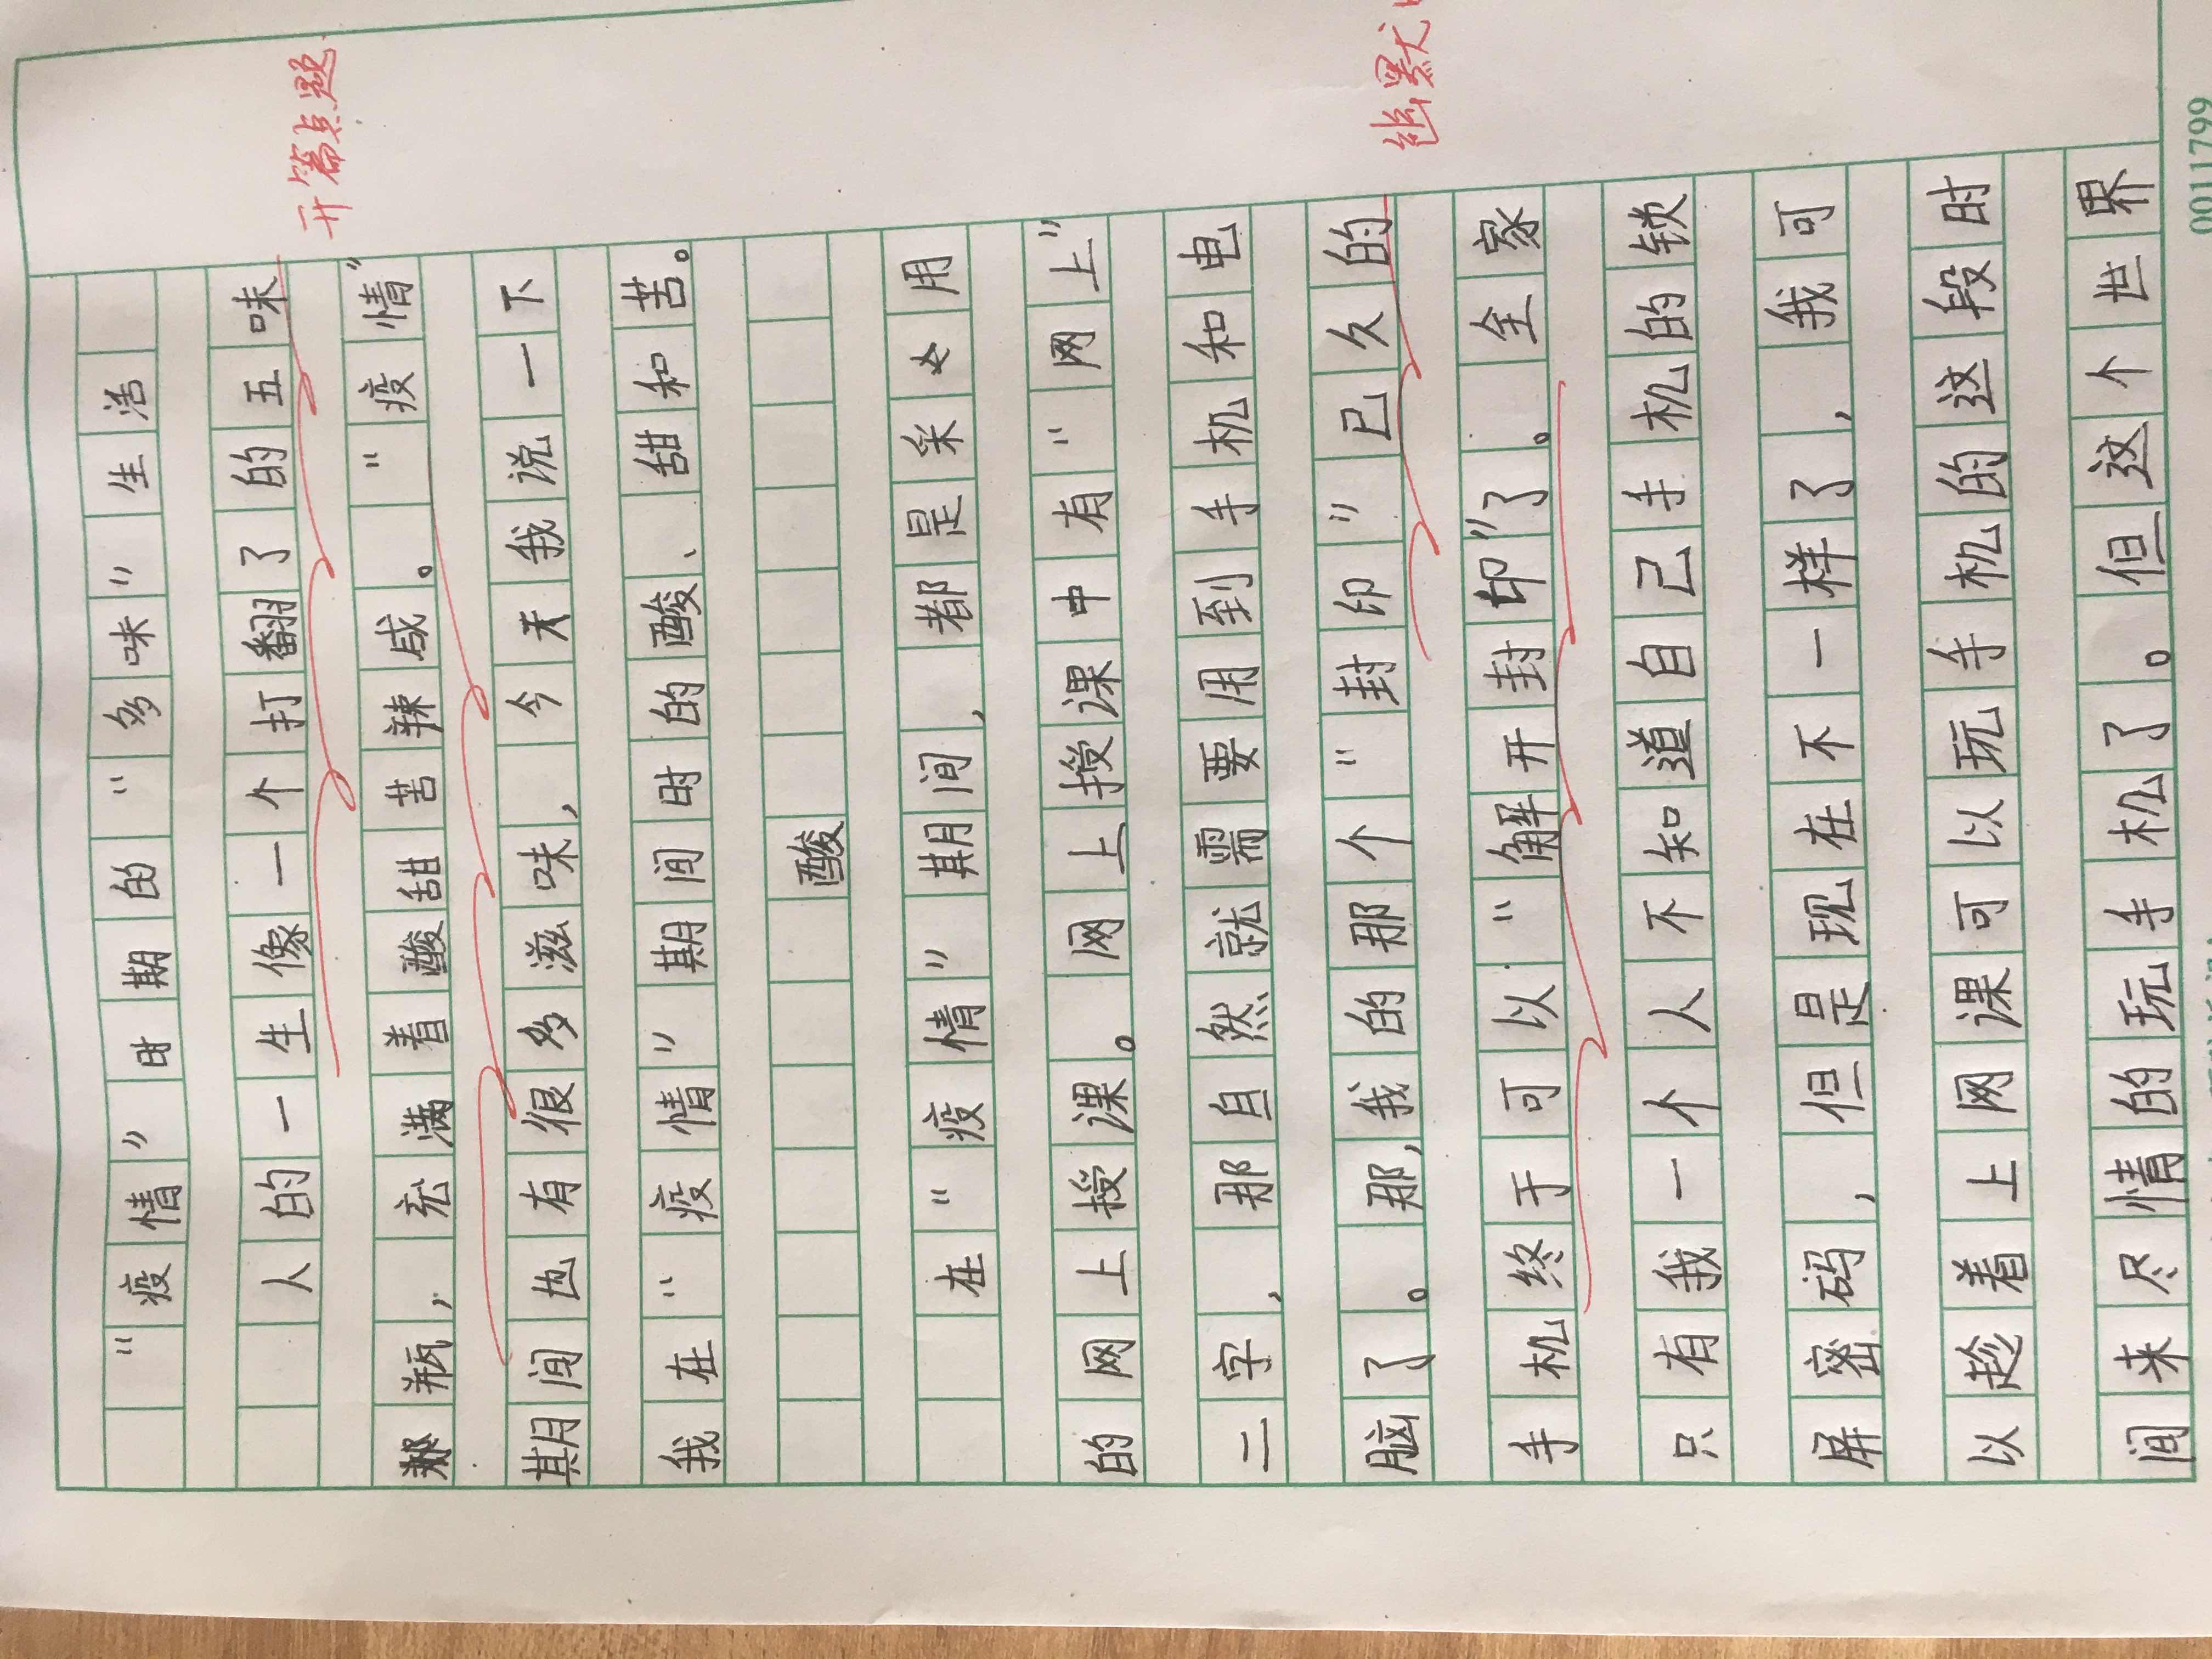 “疫情”时期的“多味”生活
人的一生像一个打翻了的五味
开篇点题
瓶，充满着酸甜苦辣咸。“疫情”
期间也有很多滋味，今天我说一下
我在“疫情”期间时的酸、甜和苦。
酸
在“疫情”期间，都是采用
的网上授课。网上授课中有“网上”
二字，那自然就需要用到手机和电
脑了。那，我的那个“封印”已久的
幽默
手机终于可以“解开封印”了。全家
只有我一个人不知道自己手机的锁
屏密码，但是现在不一样了，我可
以趁着上网课可以玩手机的这段时
间来尽情的玩手机了。但这个世界
0011799